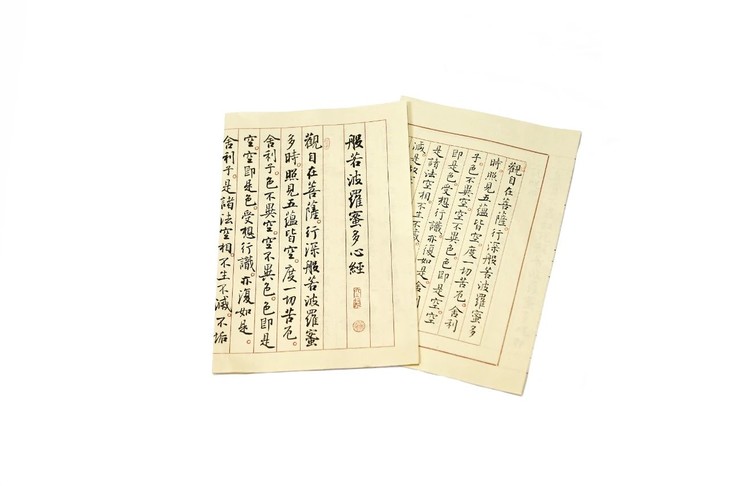 般若波羅蜜多心經
觀自在菩薩。行深般若波羅蜜
多時。照見五蘊皆空。度一切苦厄。
舍利子。色不異空。空不異色。色即是
空。空即是色。受想行識。亦復如是。
舍利子。是諸法空相。不生不滅。不垢
觀自在菩薩。行深般若波羅蜜多
時。照見五蘊皆空。度一切苦厄。舍利
子。色不異空。空不異色。色即是空。空
即是色。受想行識。亦復如是。舍利子
是諸法空相。不生不
滅。是故